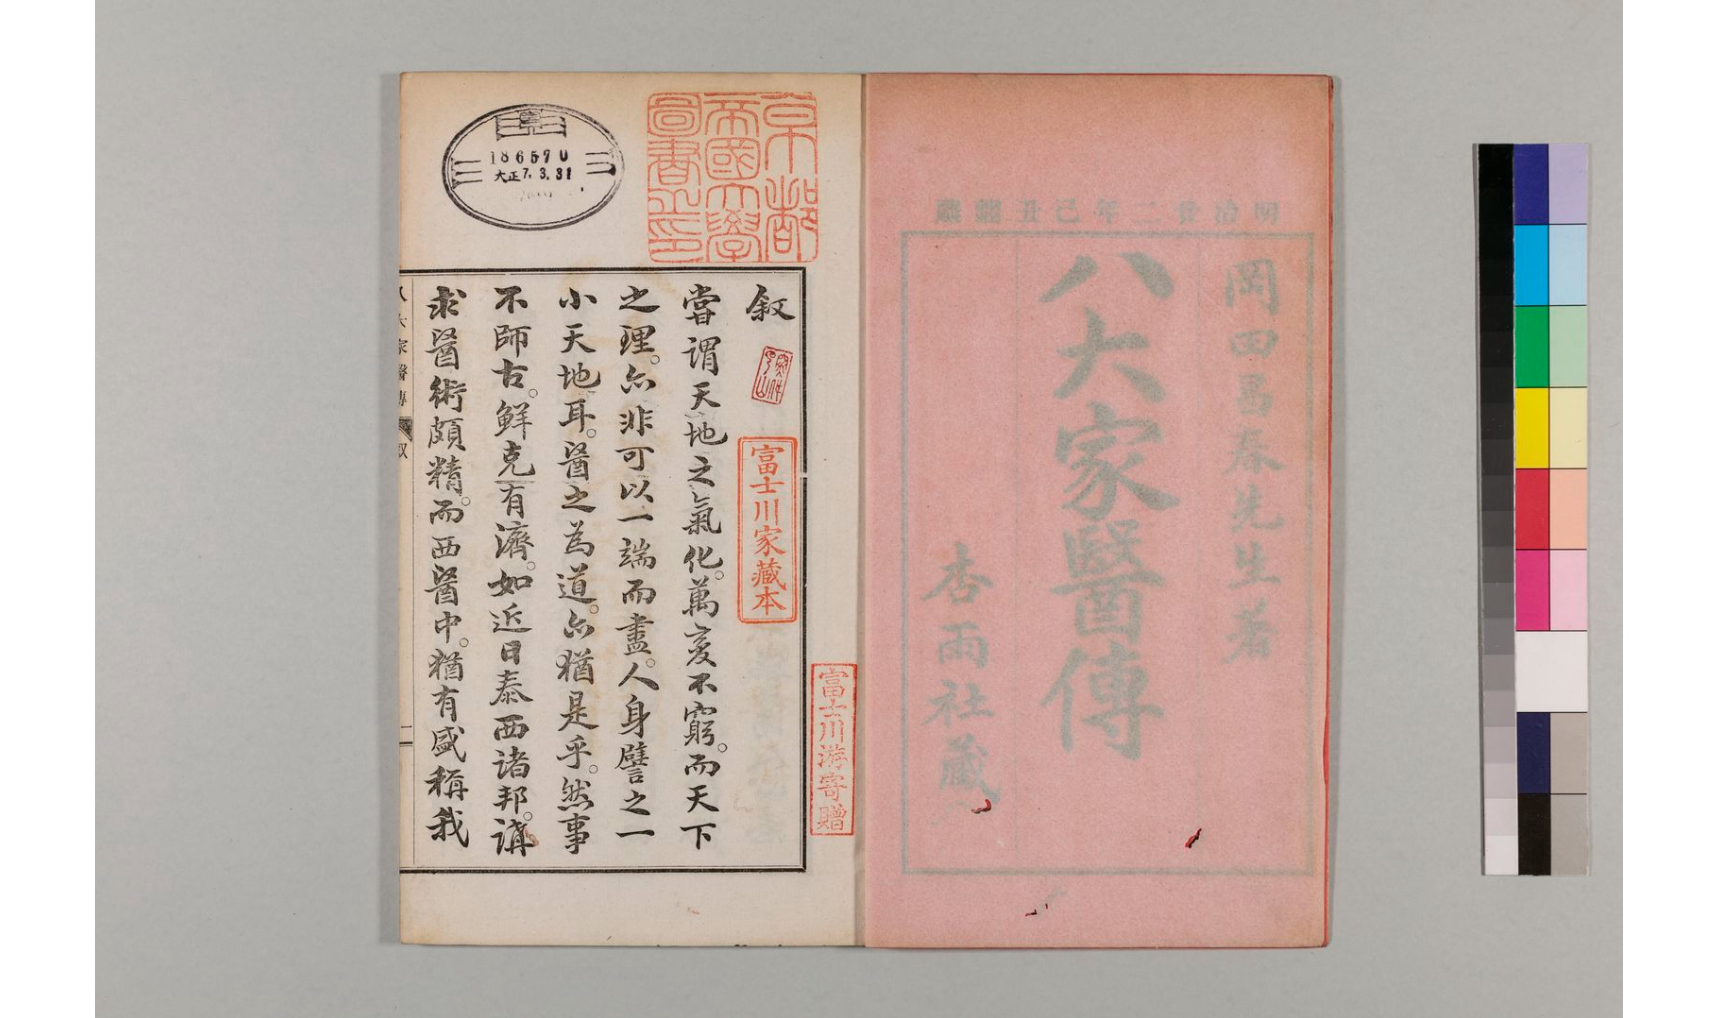 明治廿二年己丑
岡田昌春先生著
八大家醫傳
杏雨社藏
京都
帝國大學
圖書之印
186570
大正7.3.31
富士川游寄贈
富士川家藏本
叙
嘗謂天地之氣化。萬変不窮。而天下
之理。亦非可以一端而盡。人身譬之一
小天地耳。醫之為道。亦猶是乎。然事
不師古。鮮克有濟。如近日泰西諸邦。講
求醫術頗精。而西醫中。猶有盛稱我
八大家醫傳
叙
一